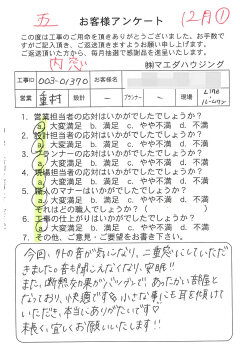 五 12月①
お客様アンケート
この度は工事のご用命を頂きありがとうございました。お手数で
すがご記入頂き、ご返送頂きますようお願い申し上げます。
ご返送頂いた方から、毎月抽選で感謝品を進呈いたします。
内窓 ㈱マエダハウジング
工事ID 003-01370 お客様名
営業 重村 設計 ー プランナー 現場
1. 営業担当者の応対はいかがでしたでしょうか?
a. 大変満足 b. 満足 c. やや不満 d. 不満
2. 設計担当者の応対はいかがでしたでしょうか?
a. 大変満足 b. 満足 c. やや不満 d. 不満
3. プランナーの応対はいかがでしたでしょうか?
a. 大変満足 b. 満足 c. やや不満 d. 不満
4. 現場担当者の応対はいかがでしたでしょうか?
a. 大変満足 b. 満足 c. やや不満 d. 不満
5. 職人のマナーはいかがでしたでしょうか?
a. 大変満足 b. 満足 c. やや不満 d. 不満
それはどの職人でしょうか?( )
6. 工事の仕上がりはいかがでしたでしょうか?
a. 大変満足 b. 満足 c. やや不満 d. 不満
7. その他、ご意見・ご要望をお書き下さい。
今回、外の音が気になり、二重窓にしていただ
きました。音も聞こえなくなり、安眠!!
また、断熱効果がバツグンで、あったかい部屋と
なっており、快適です。小さな事にも耳を傾けて
いただき、本当にありがたいです♡
末長く、宜しくお願いいたします!!